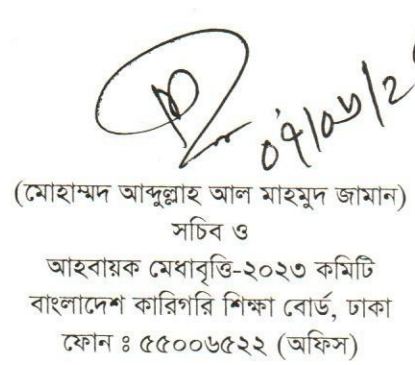 (মোহাম্মদ আব্দুল্লাহ আল মাহমুদ জামান)
সচিব ও
আহবায়ক মেধাবৃত্তি-২০২৩ কমিটি
বাংলাদেশ কারিগরি শিক্ষা বোর্ড, ঢাকা
ফোন ঃ ৫৫০০৬৫২২ (অফিস)